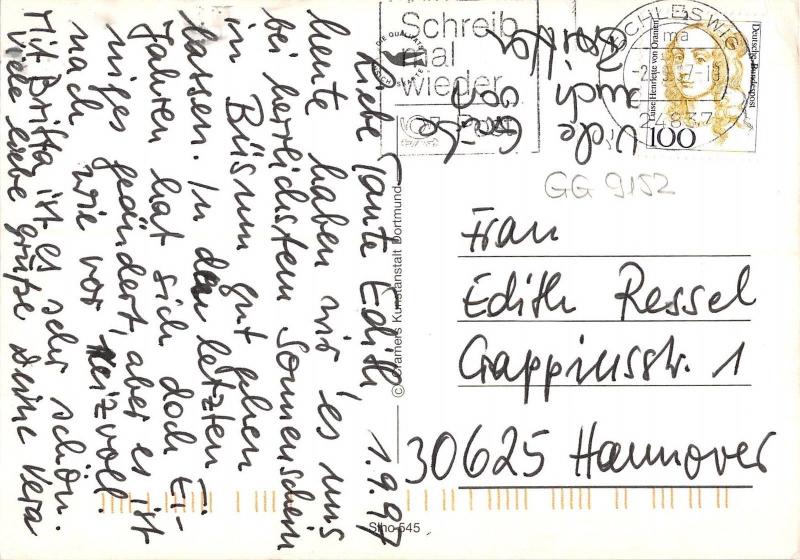 Liebe Tante Edith, 1.9.97
heute haben wir es uns
bei herrlichstem Sonnenschein
in Büsum gut gehen
lassen. In den letzten
Jahren hat sich doch Ei-
niges geändert, aber es ist
nach wie vor reizvoll.
Mit Britta ist es sehr schön.
Viele liebe Grüße Deine Vera
Schreib
mal
wieder
SCHLESWIG
ma
24837
Deutsche Bundespost
Luise Henriette von Oranien
100
GG 9152
© Cramers Kunstanstalt Dortmund
Frau
Edith Ressel
Gappiusstr. 1
30625 Hannover
Stho 545